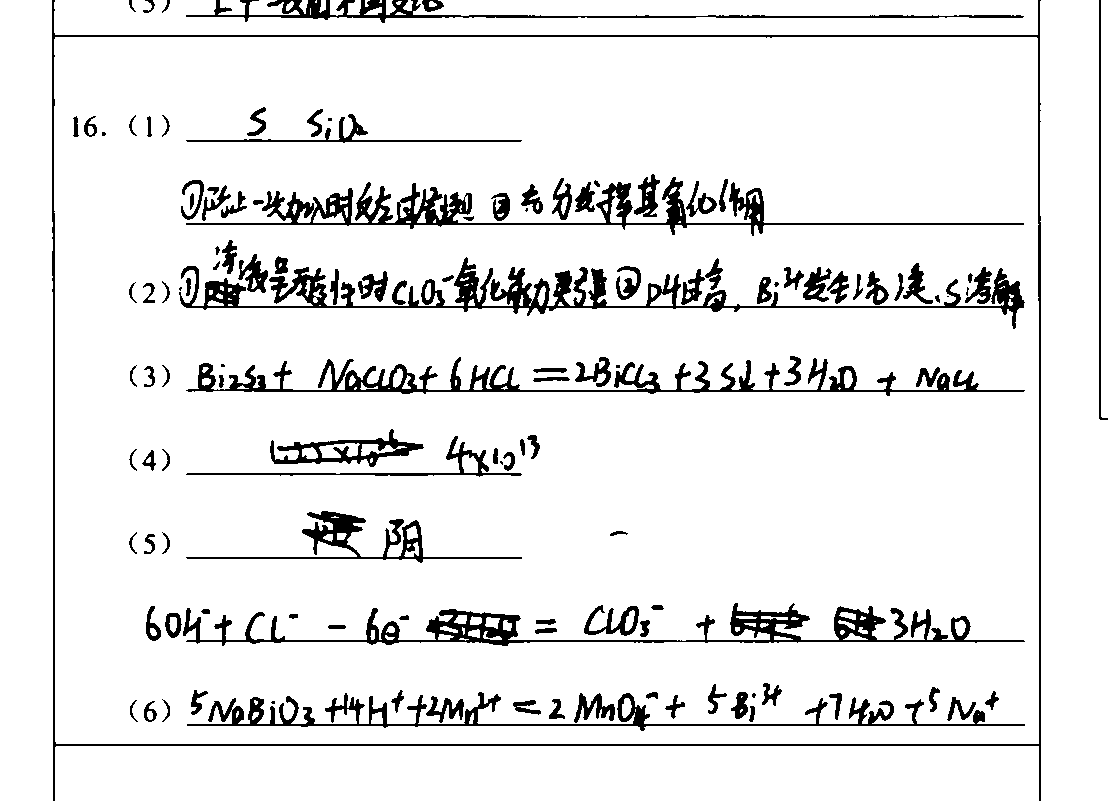 16.（1） S SiO₂
①防止一次加入时反应过度剧烈 ②充分发挥其氧化作用
（2）①溶液呈酸性时ClO₃⁻氧化能力更强②PH过高，Bi³⁺发生沉淀、S溶解
（3）Bi₂S₃+ NaClO₃+ 6HCl =2BiCl₃ +3S↓+3H₂O + NaCl
（4） 4×10¹³
（5） 阴
6OH⁻+ Cl⁻ - 6e⁻ = ClO₃⁻ + 3H₂O
（6）5NaBiO₃+14H⁺+2Mn²⁺=2MnO₄⁻+ 5Bi³⁺ +7H₂O+5Na⁺